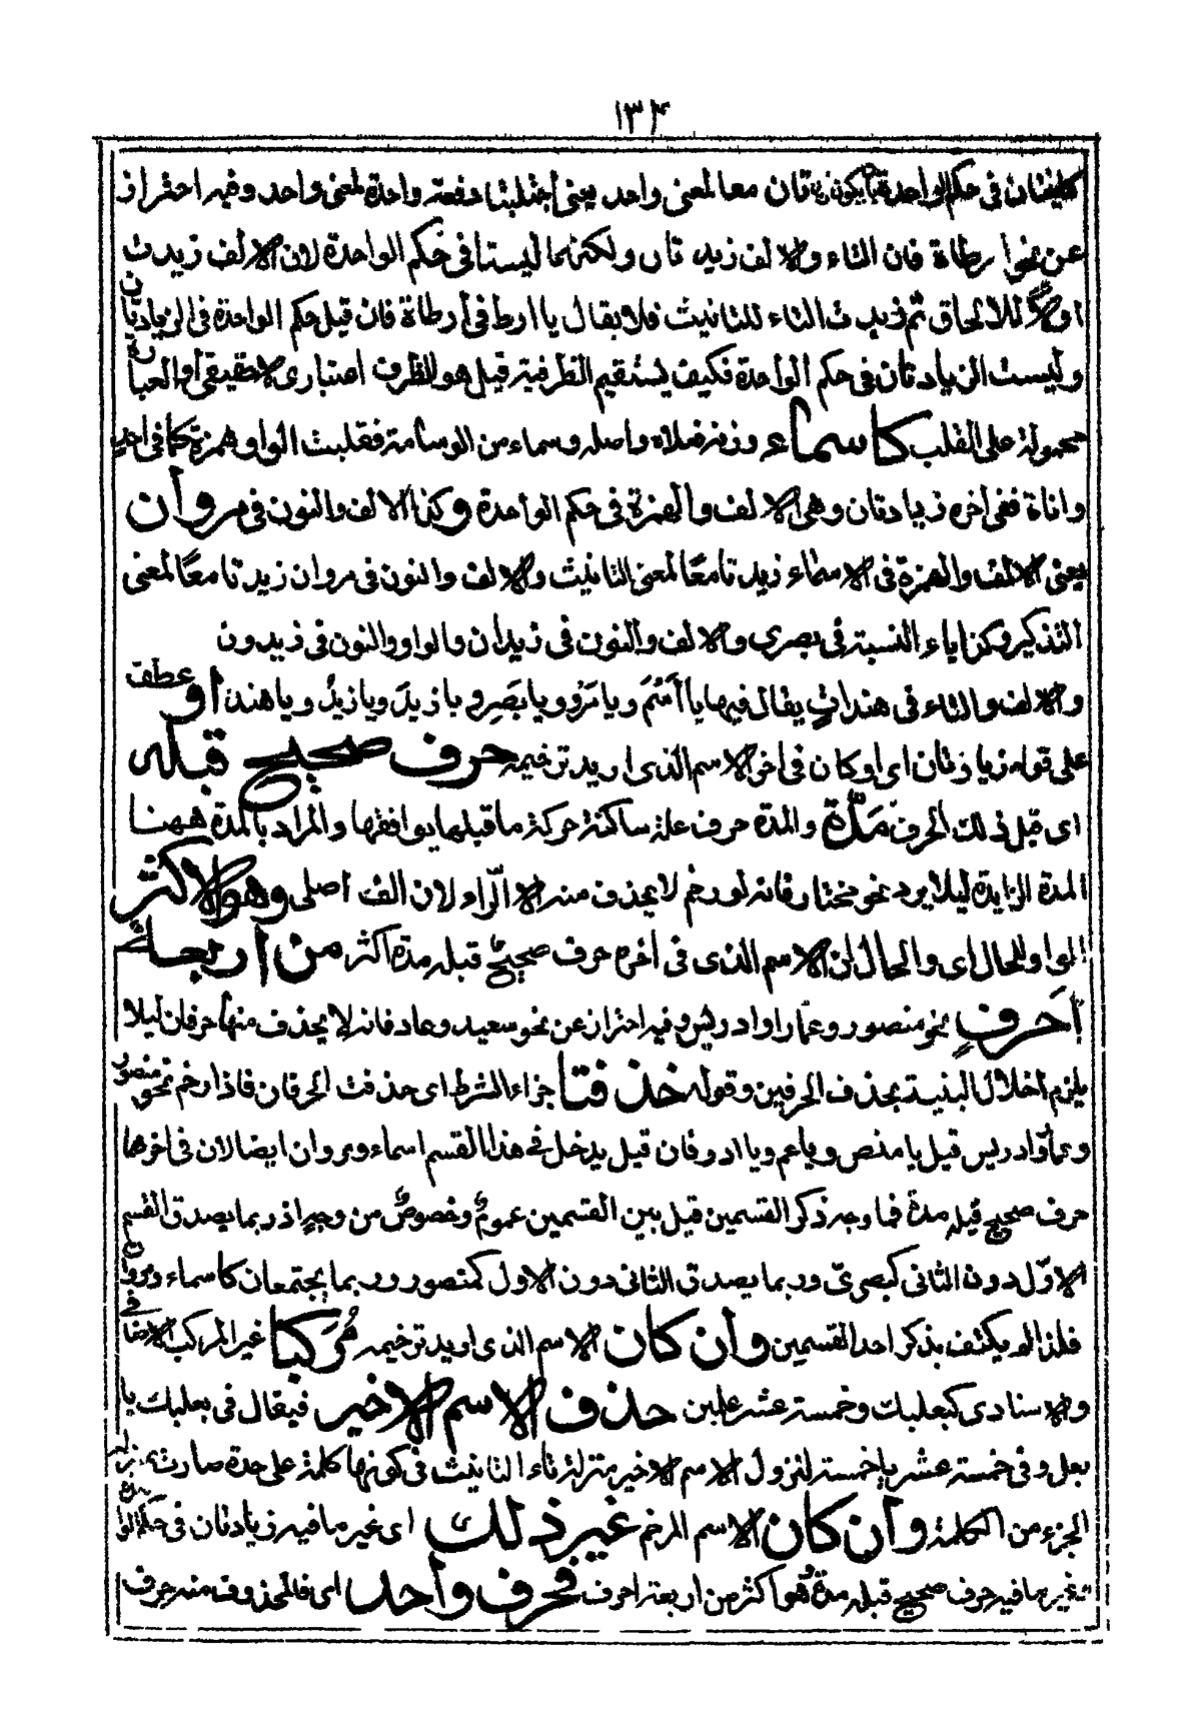 ١٣٤
كائنتان فى حكم الواحدة بان يكون زيادتان معا لمعنى واحد يعنى اجتلبتا دفعة واحدة لمعنى واحد وفيه احتراز
عن نحو ارطاة فان التاء والالف زيد تان ولكنهما ليستا فى حكم الواحدة لان الالف زيدت
اولا للالحاق ثم زيدت التاء للتانيث فلا يقال يا ارط فى أرطاة فان قيل حكم الواحدة فى الزيادتان
وليست الزيادتان فى حكم الواحدة فكيف يستقيم الظرفية قيل هو للظرف اعتبارى لا حقيقى أو العبارة
محمولة على القلب كاسماء وزنه فعلاء واصله وسماء من الوسامة فقلبت الواو همزة كما فى احد
واناة ففى أخره زيادتان وهى الالف والهمزة فى حكم الواحدة وكذا الالف والنون فى مروان
يعنى الالف والهمزة فى الاسماء زيد تا معًا لمعنى التانيث والالف والنون فى مروان زيد تا معًا لمعنى
التذكير وكذا ياء النسبة فى بصرى والالف والنون فى زيدان والواو والنون فى زيدون
والالف والتاء فى هندات يقال فيها يا أسمَ ويا مَرْوَ ويا بَصْرِ ويا زيدَ ويا زيدُ ويا هند أو عطف
على قوله زيادتان اى او كان فى اخر الاسم الذى اريد ترخيمه حرف صحيح قبله
اى قبل ذلك الحرف مَدّة والمدة حرف علة ساكنة حركة ما قبلها يوافقها والمراد بالمدة ههنا
المدة الزايدة ليلا يرد نحو مختار فانه لو رخم لا يحذف منه الا الرّاء لان الف اصلى وهو الاكثر
الواو للحال اى والحال ان الاسم الذى فى أخره حرف صحيح قبله مدة اكثر من أربعة
أحرفٍ نحو منصور وعمّار وادريس وفيه احتراز عن نحو سعيد وعاد فانه لا يحذف منها حرفان ليلا
يلزم اخلال البنية بحذف الحرفين وقوله حذفتا جزاء الشرط اى حذفت الحرفان فاذا رخم نحو منصور
وعمار وادريس قيل يا منص ويا عم ويا ادر فان قيل يدخل فى هذا القسم اسماء ومروان ايضا لان فى اخرها
حرف صحيح قبله مدة فما وجه ذكر القسمين قيل بين القسمين عمومٌ وخصوصٌ من وجه اذ ربما يصدق القسم
الاوّل دون الثانى كبصرىّ وربما يصدق الثانى دون الاول كمنصور وربما يجتمعان كاسماء ومروان
فلذا لم يكتف بذكر احد القسمين وأن كان الاسم الذى اريد ترخيمه مُركبًا غير المركب الاضافى
والاسنادى كبعلبك وخمسة عشر علمين حذف الاسم الاخير فيقال فى بعلبك يا
بعل وفى خمسة عشر يا خمسة لنزول الاسم الاخير منزلة تاء التانيث فى كونها كلمة على حدة صارت بمنزلة
الجزء من الكلمة وأن كان الاسم المرخم غير ذلك اى غير ما فيه زيادتان فى حكم الواحدة
وغير ما فيه حرف صحيح قبله مدة وهو اكثر من اربعة احرف فحرف وأحد اى فالمحذوف منه حرف